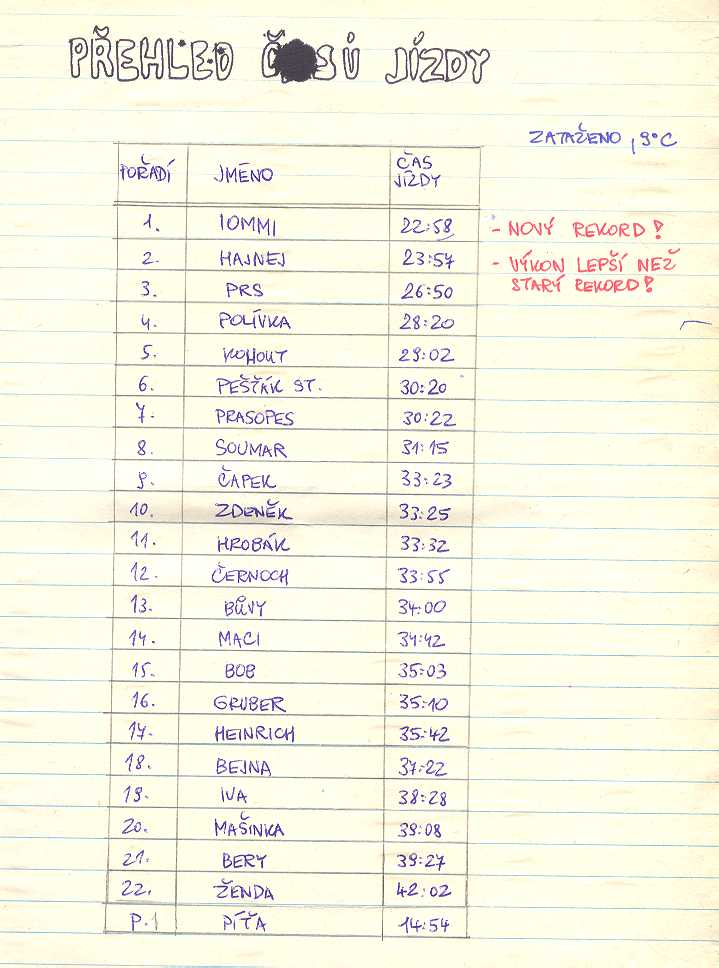 PŘEHLED ČASŮ JÍZDY
ZATAŽENO, 9°C
POŘADÍ JMÉNO ČAS JÍZDY
1. IOMMI 22:58 - NOVÝ REKORD!
2. HAJNEJ 23:57 - VÝKON LEPŠÍ NEŽ
STARÝ REKORD!
3. PRS 26:50
4. POLÍVKA 28:20
5. KOHOUT 29:02
6. PEŠŤÁK ST. 30:20
7. PRASOPES 30:22
8. SOUMAR 31:15
9. ČAPEK 33:23
10. ZDENĚK 33:25
11. HROBÁK 33:32
12. ČERNOCH 33:55
13. BŮVY 34:00
14. MACI 34:42
15. BOB 35:03
16. GRUBER 35:10
17. HEINRICH 35:42
18. BEJNA 37:22
19. IVA 38:28
20. MAŠINKA 39:08
21. BERY 39:27
22. ŽENDA 42:02
P.1 PÍŤA 14:54